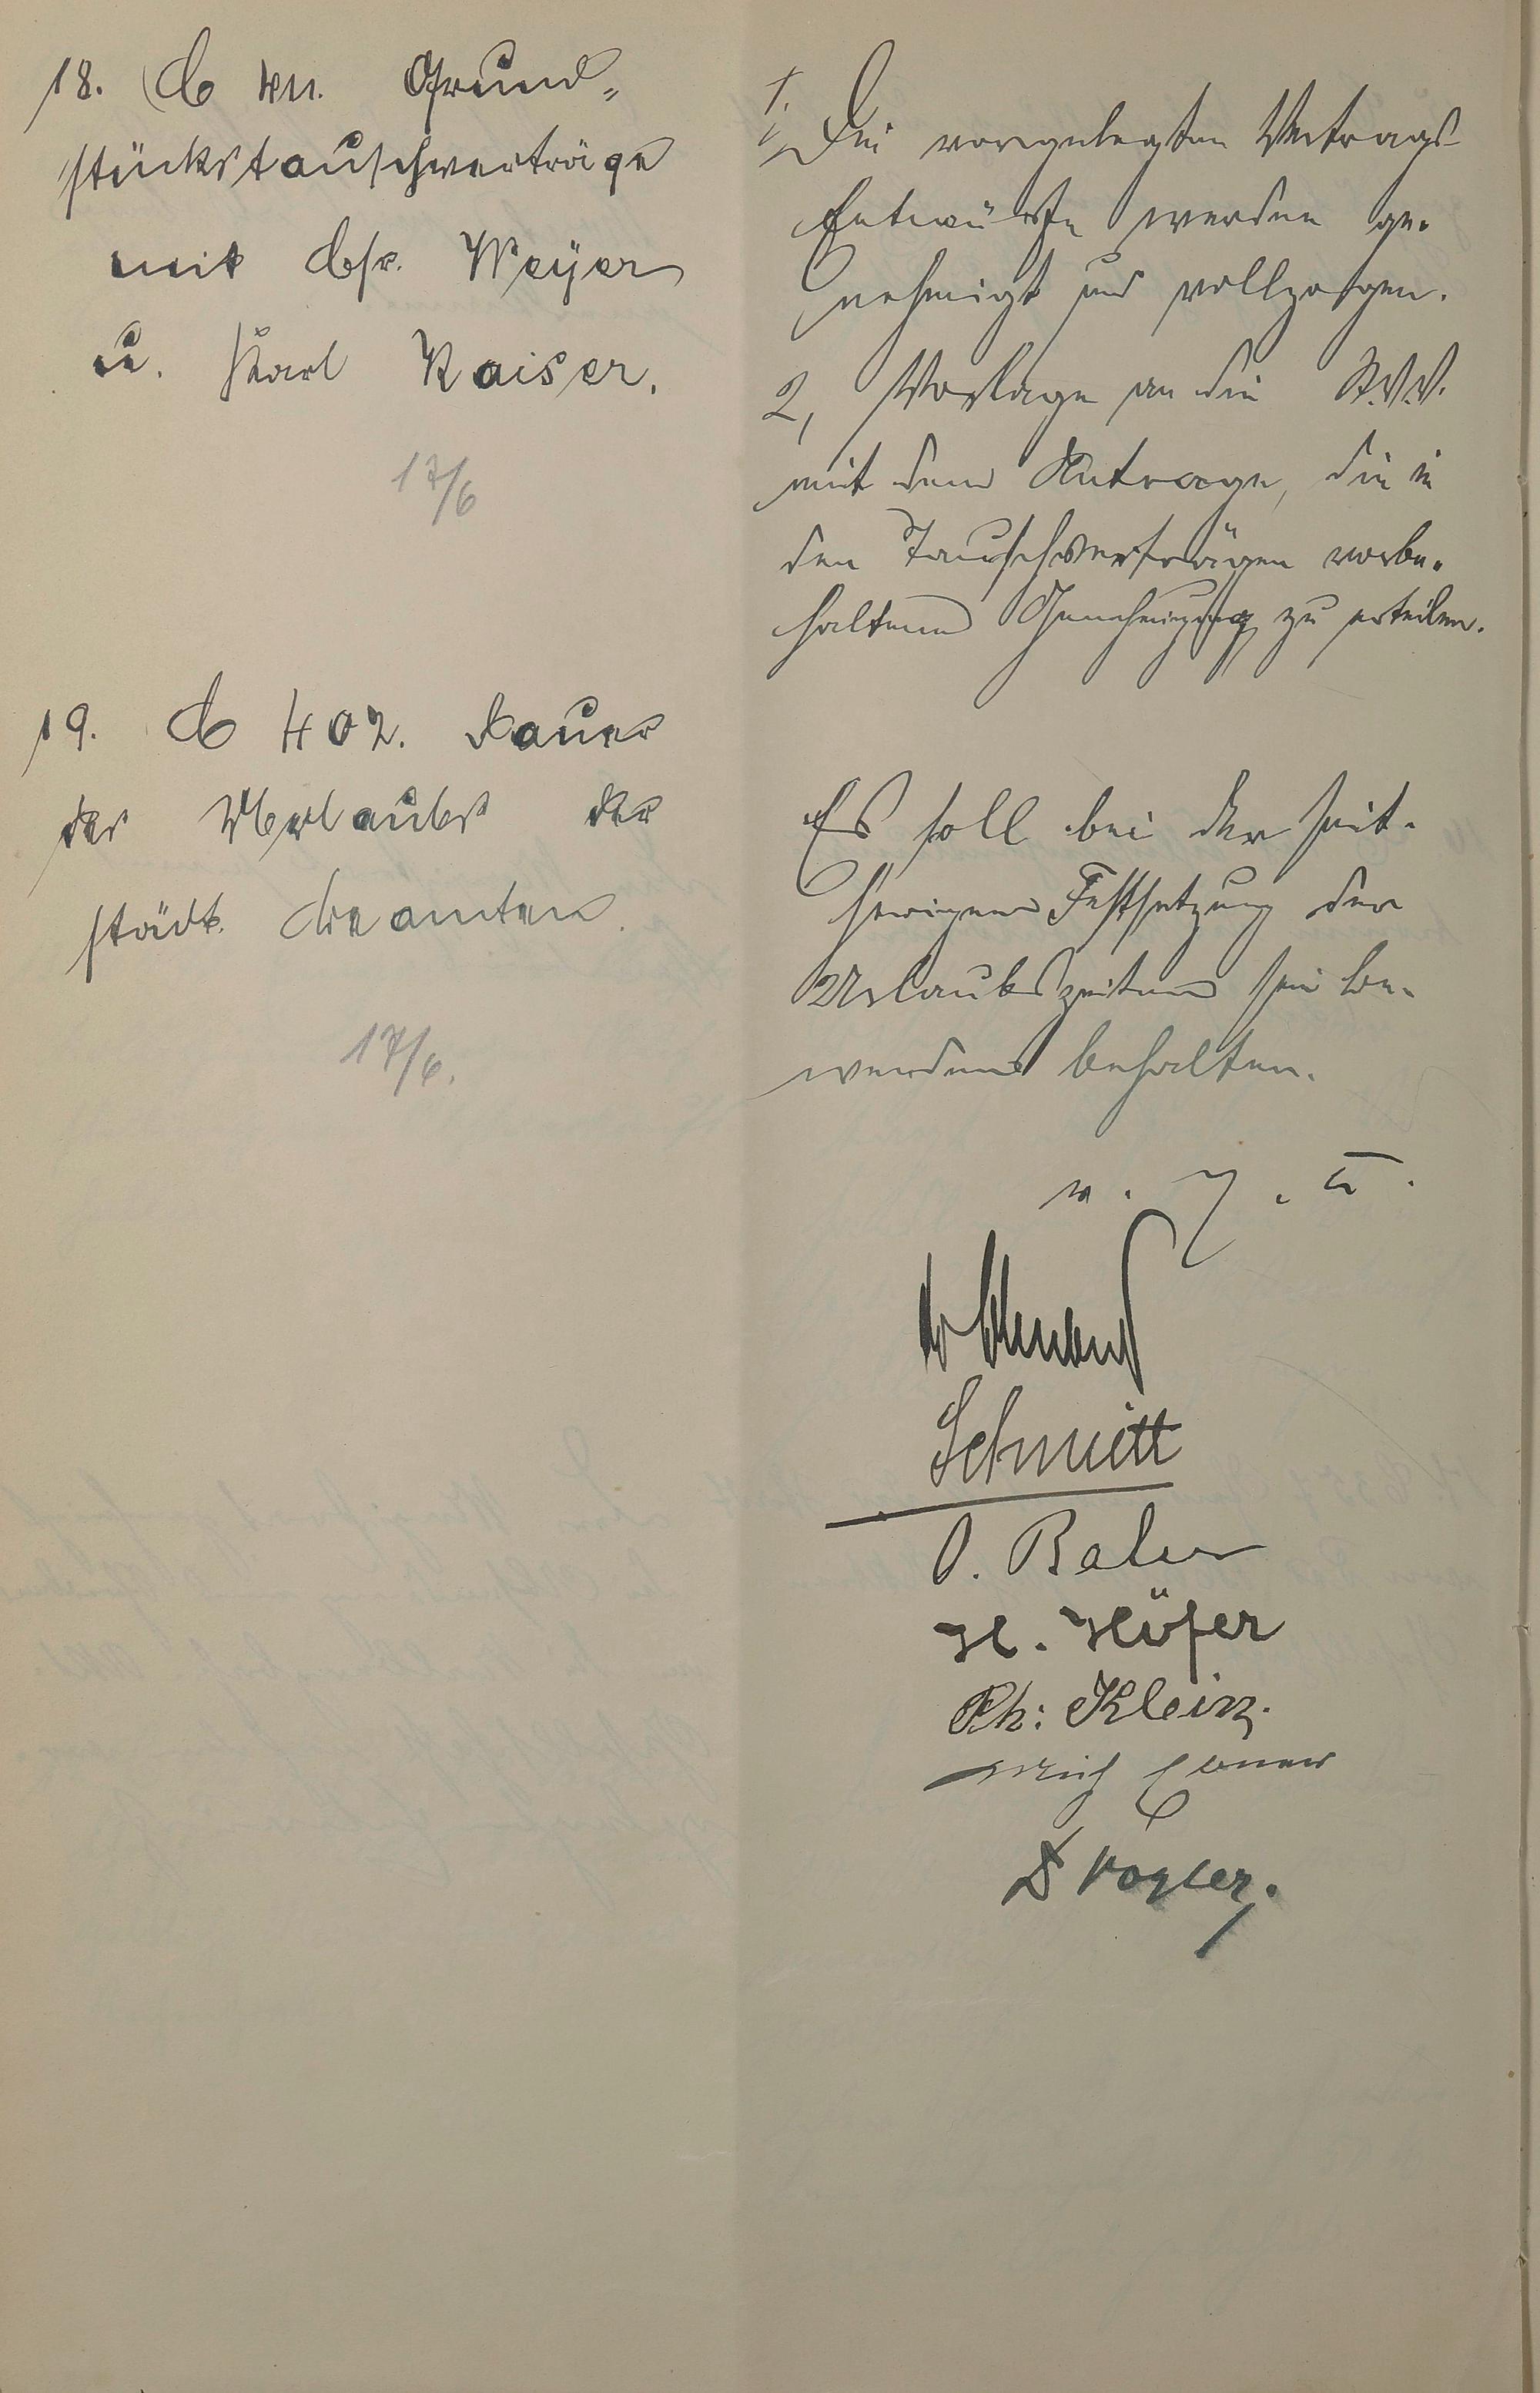 18. B 411. Grund„
stückstauschverträge
mit Chr. Weÿer
u. Karl Kaiser.
17/6
1, Die vorgelegten Vertrags-
Entwürfe werden ge-
nehmigt und vollzogen.
2, Vorlage an die St.V.V.
mit dem Antrage, die in
den Tauschverträgen vorbe-
haltene Genehmigung zu erteilen.
19. B 402. Dauer
des Urlaubs der
städt. Beamten.
17/6.
Es soll bei der seit-
herigen Festsetzung der
Urlaubszeiten sein Be-
wenden behalten.
v. g. u.
Schmitt
O. Baler
H. Höfer
Ph: Klein.
D Vogler.